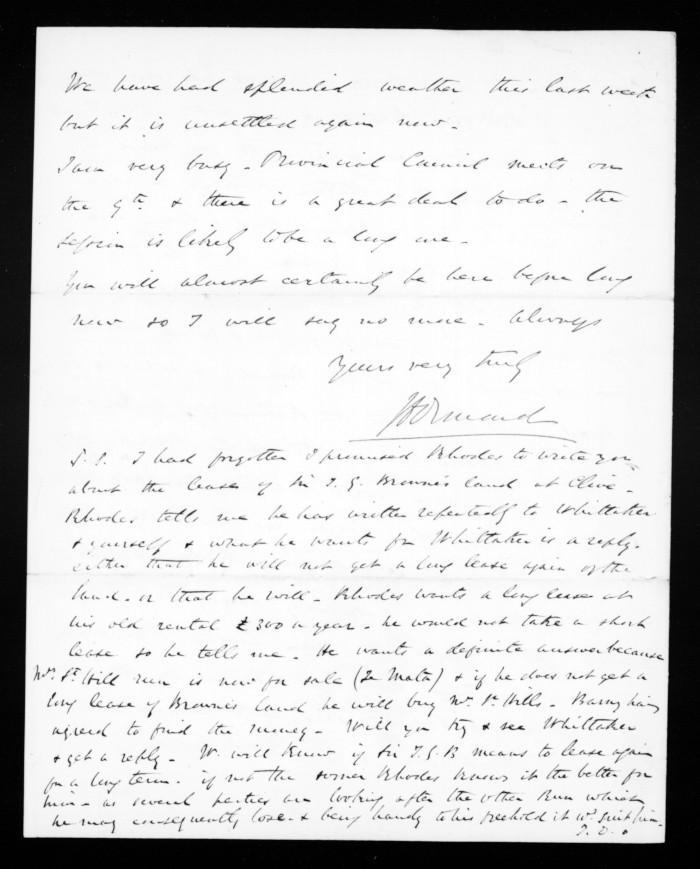 We have had splendid weather this last week
but it is unsettled again now -
I am very busy - Provincial Council meets on
the 9th & there is a great deal to do - the
session is likely to be a long one -
You will almost certainly be here before long
now so I will say no more - Always
Yours very truly
JD Ormond
P.S. I had forgotten I promised Rhodes to write you
about the lease of Sir T. G. Browne's land at Clive -
Rhodes tells me he has written repeatedly to Whittaker
& yourself & what he wants from Whittaker is a reply -
either that he will not get a long lease again of the
land - or that he will - Rhodes wants a long lease at
his old rental £300 a year - he would not take a short
lease so he tells me - He wants a definite answer because
Mrs. St. Hill run is now for sale (Te Mata) & if he does not get a
long lease of Browne's land he will buy Mrs. St. Hills -
agreed to find the money - Will you try & see Whittaker
& get a reply - W. will know if Sir T. G. B means to lease again
for a long term - if not the sooner Rhodes knows it the better for
him - as several parties are looking after the other Run which
he may consequently lose - & being handy to his freehold it wd. suit him -
J. D. O